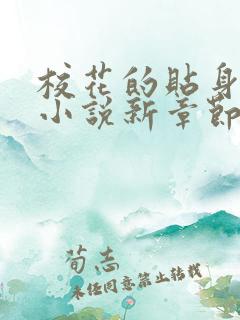 校花的貼身
小説新章節
荀志
未经同意禁止转载